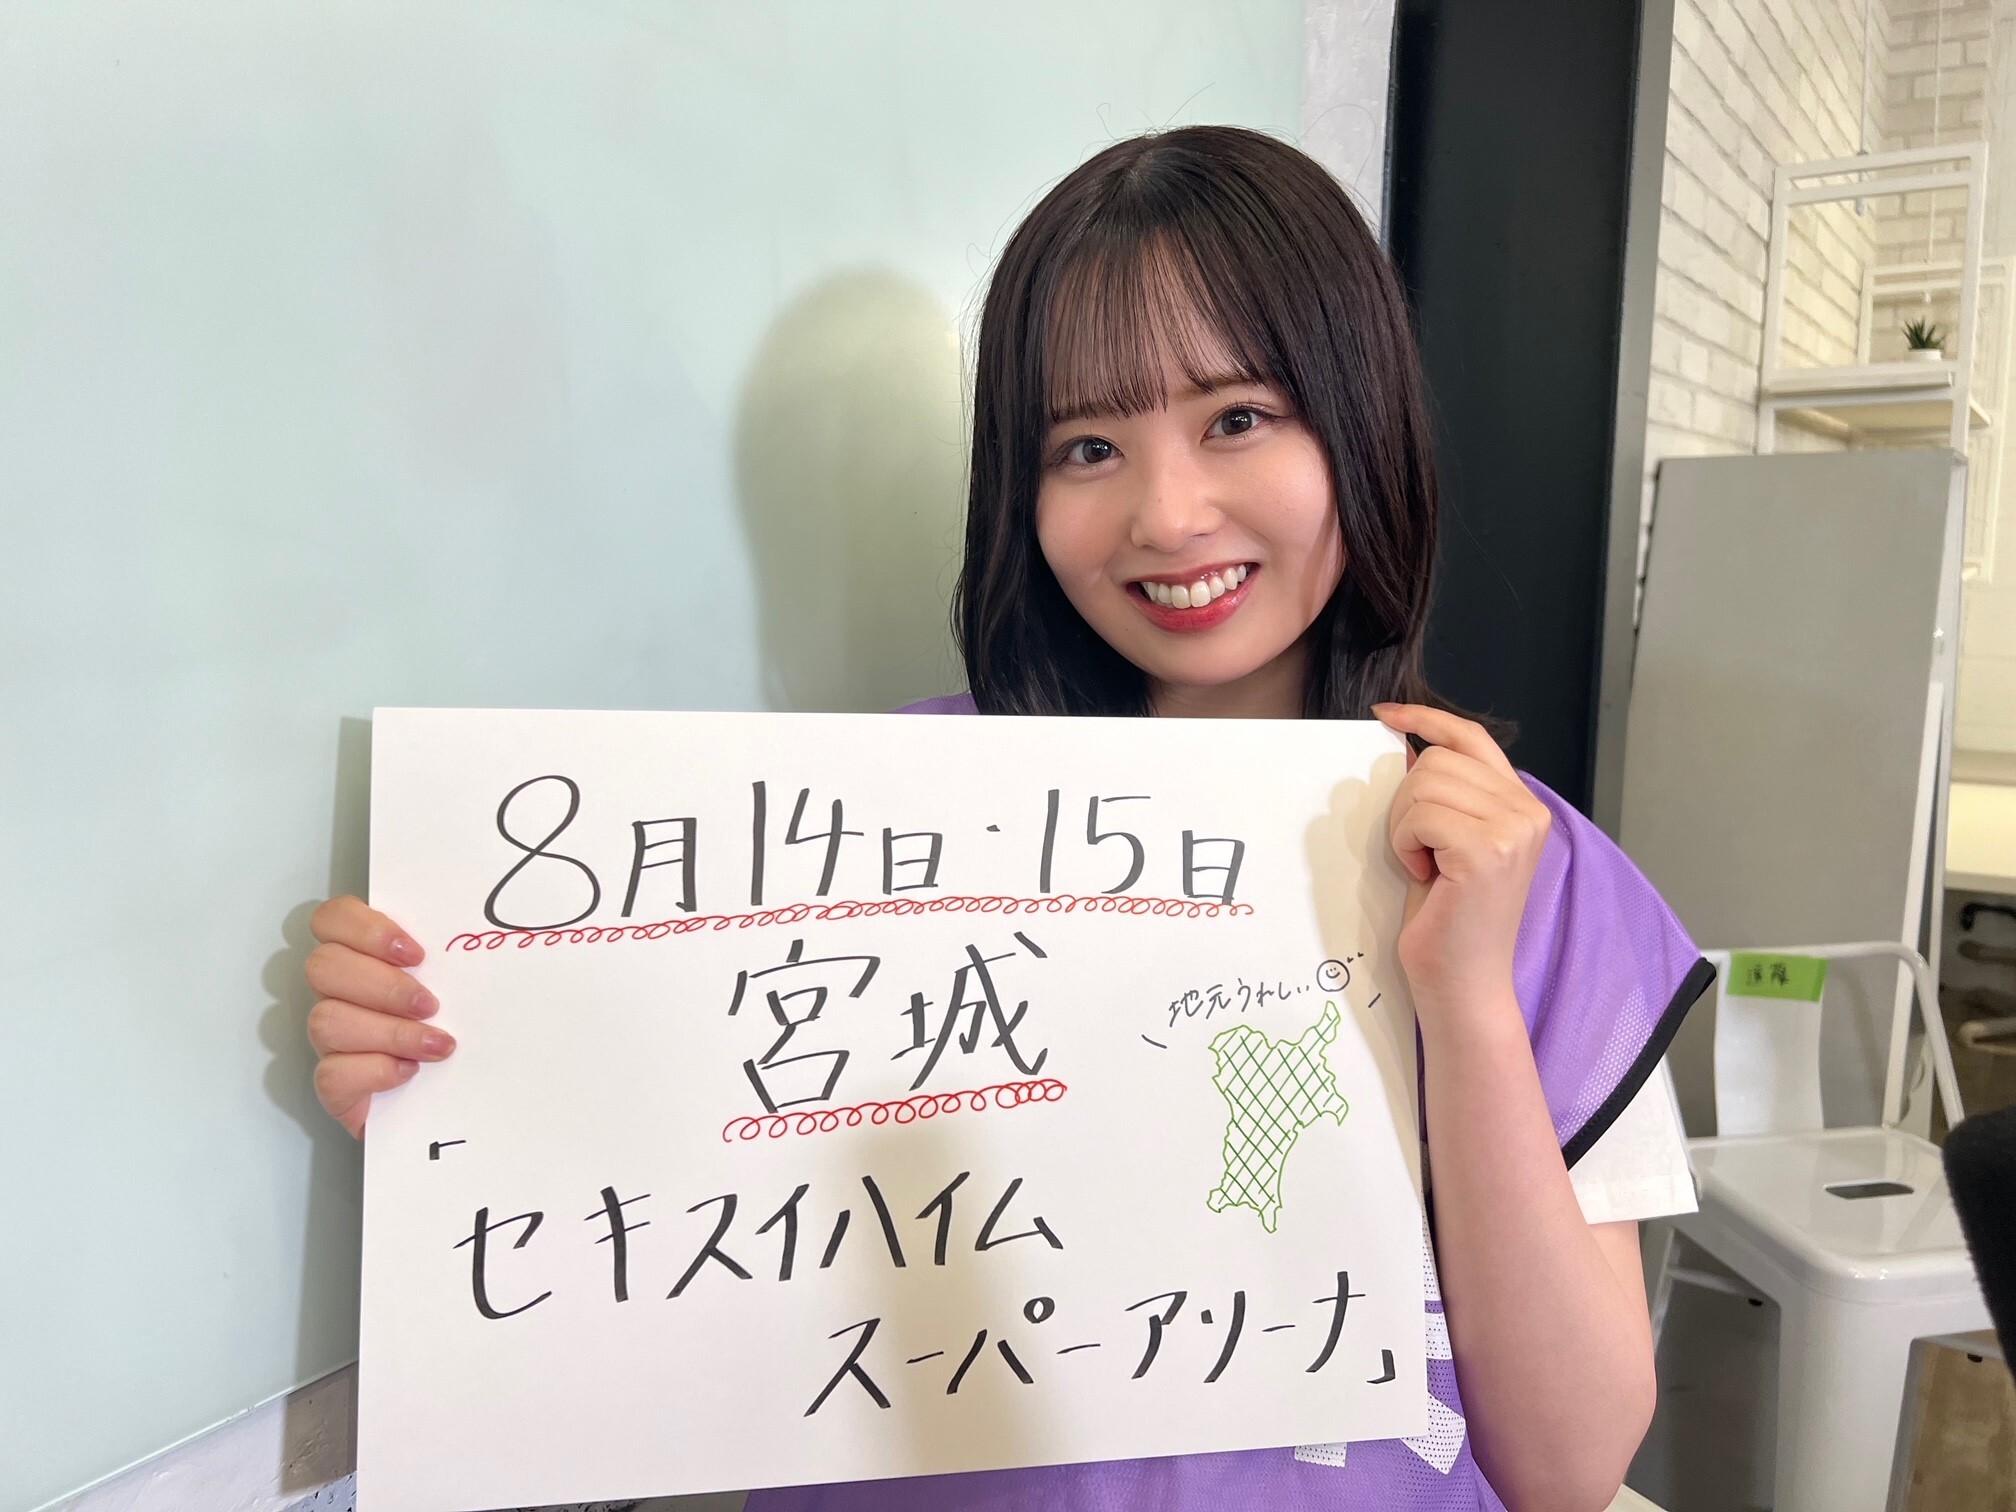 8月14日・15日
宮城
地元うれしい
「セキスイハイム
スーパーアリーナ」